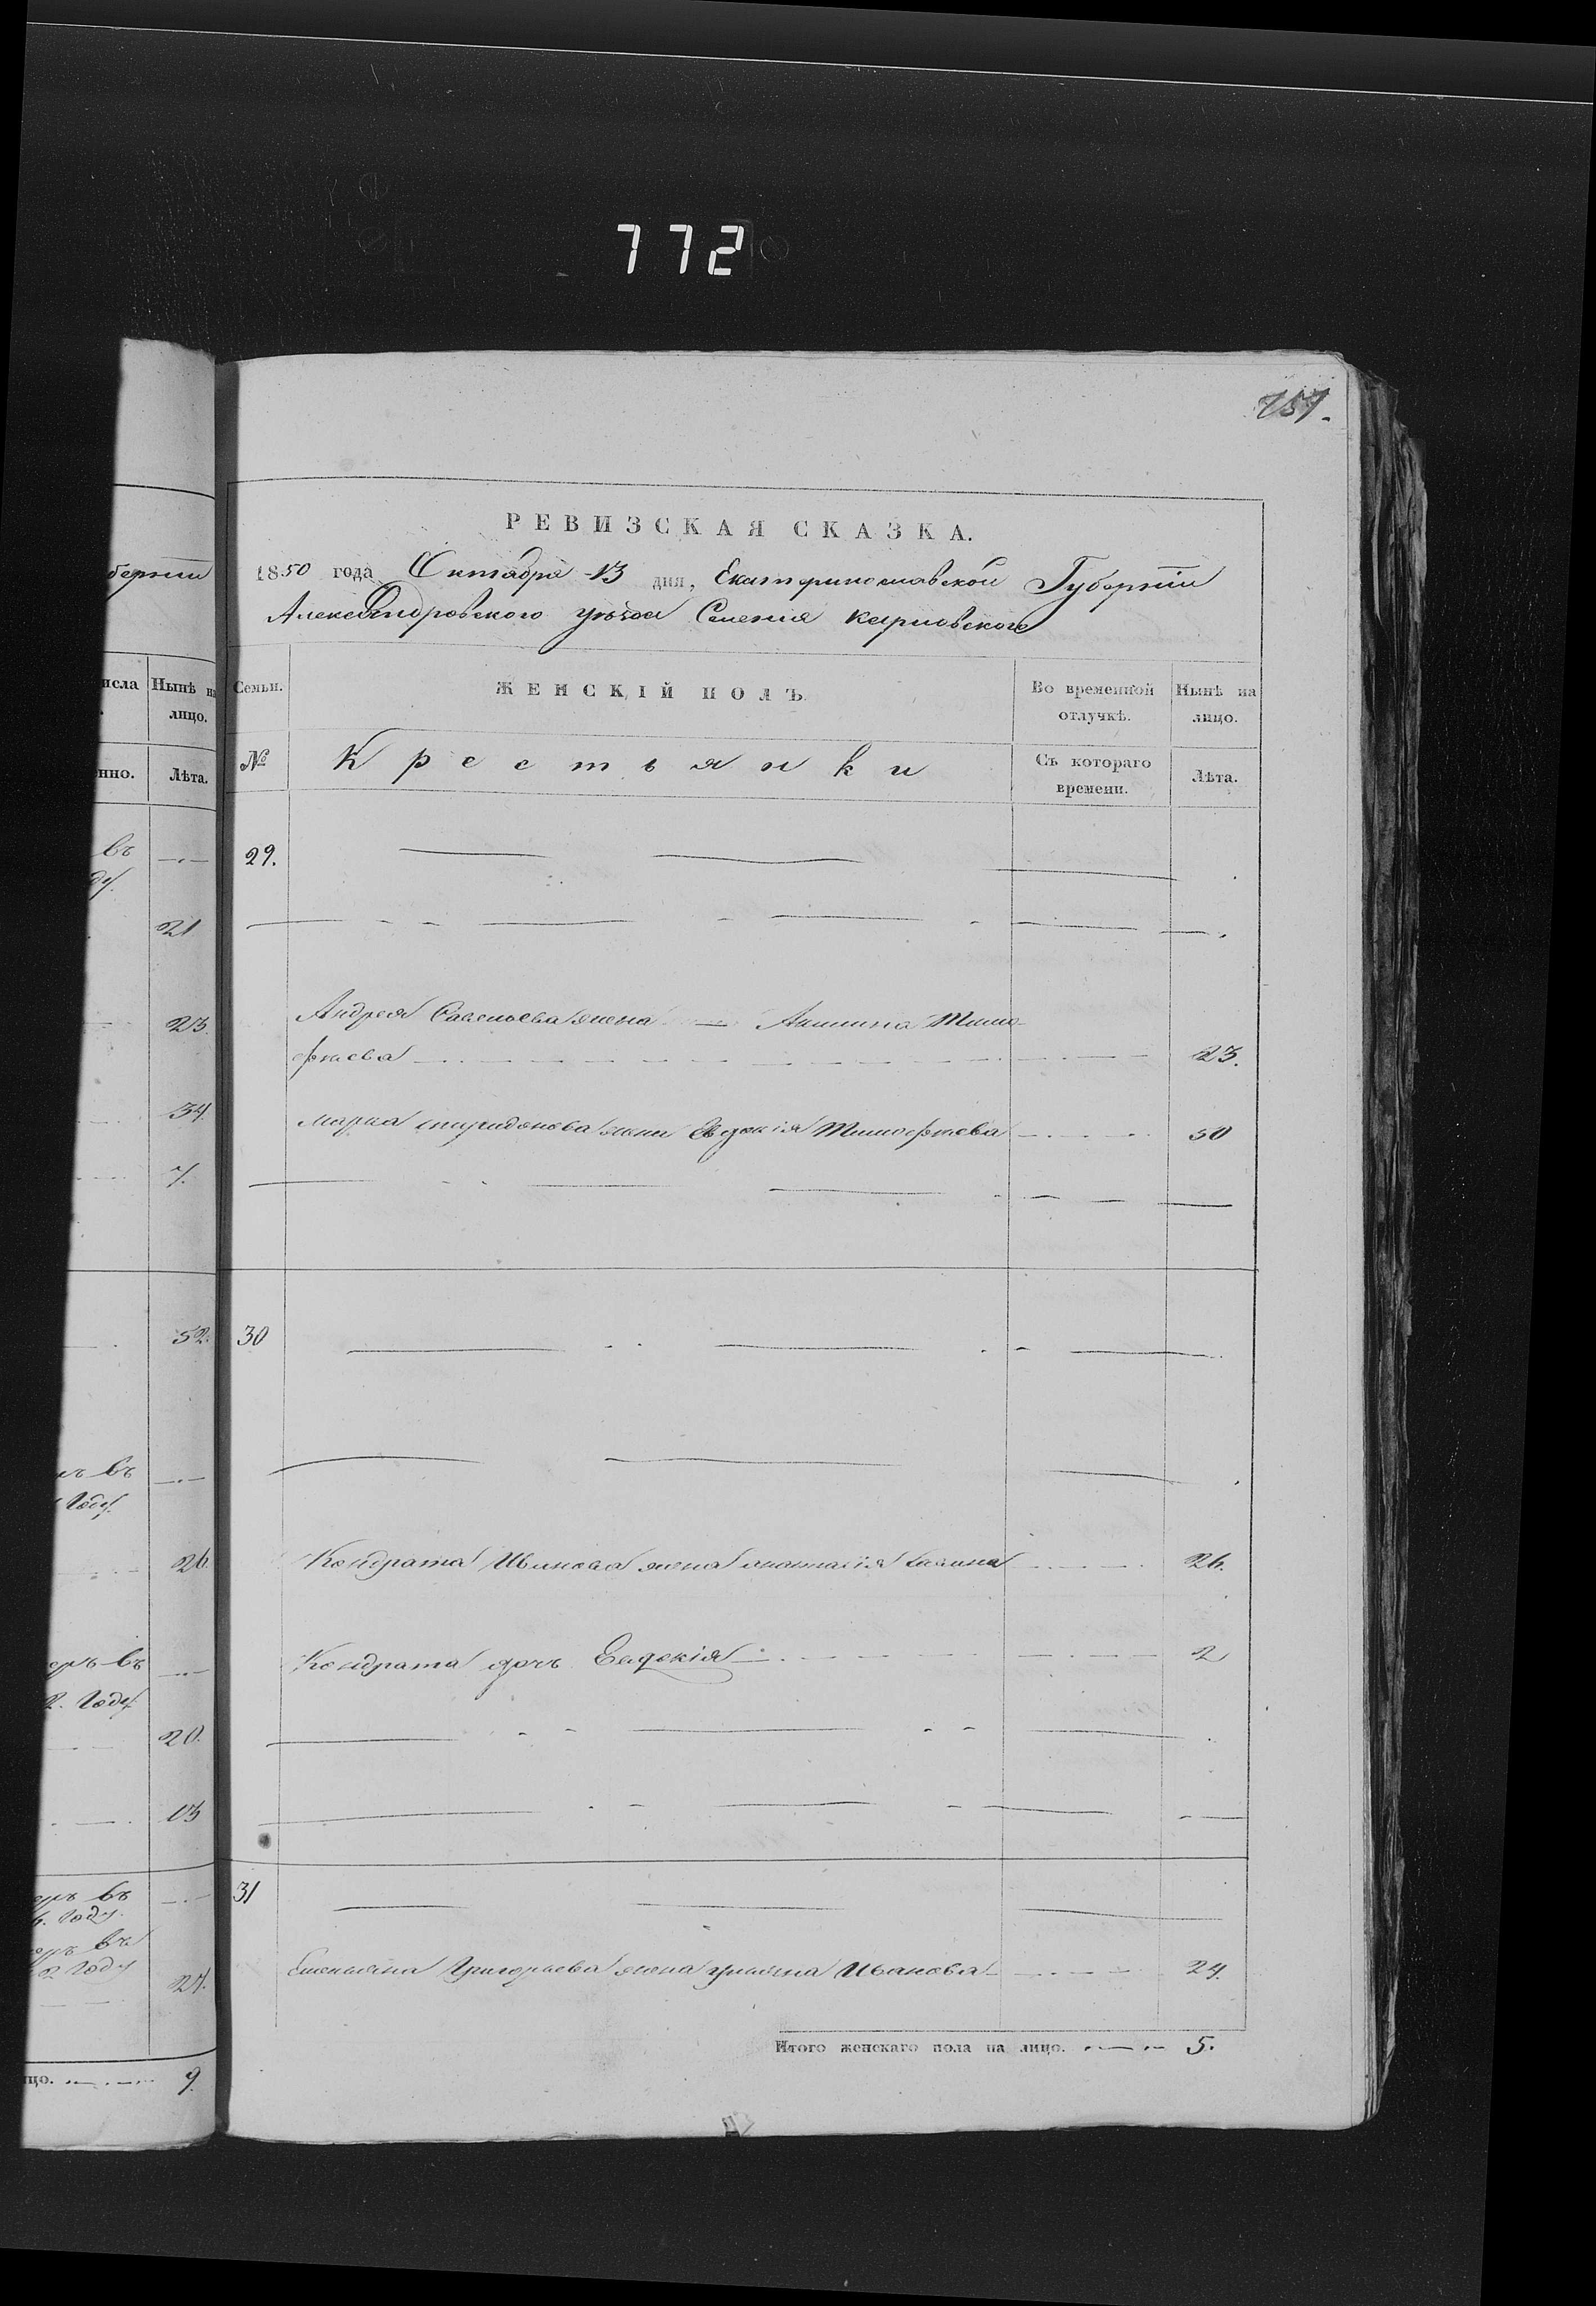 772
757.
РЕВИЗСКАЯ СКАЗКА.
1850 года Октября 13 дня, Екатеринославской Губерніи
Александровского уѣзда Селенія Карповского
Семьи. ЖЕНСКІЙ ПОЛЪ. Во временной отлучкѣ. Нынѣ на лицо.
№ Крестьянки Съ котораго времени. Лѣта.
29.
Андрея Савельева жена — Акилина Тимо-
фѣева 23.
Марка Спиридонова жена Евдокія Тимофѣева 50
30
Кондрата Иванова жена Анастасія 26.
Кондрата дочь Евдокія 2
31
Емельяна Григорьева жена Ульяна Иванова 24.
Итого женскаго пола на лицо. 5.
берніи
исла Нынѣ на
лицо.
нно. Лѣта.
въ
ду.
21
23.
34.
7.
52.
ъ въ
Году.
26.
еръ въ
2. Году
20.
13
еръ въ
6. Году.
еръ въ
2. Году
27.
цо. 9.